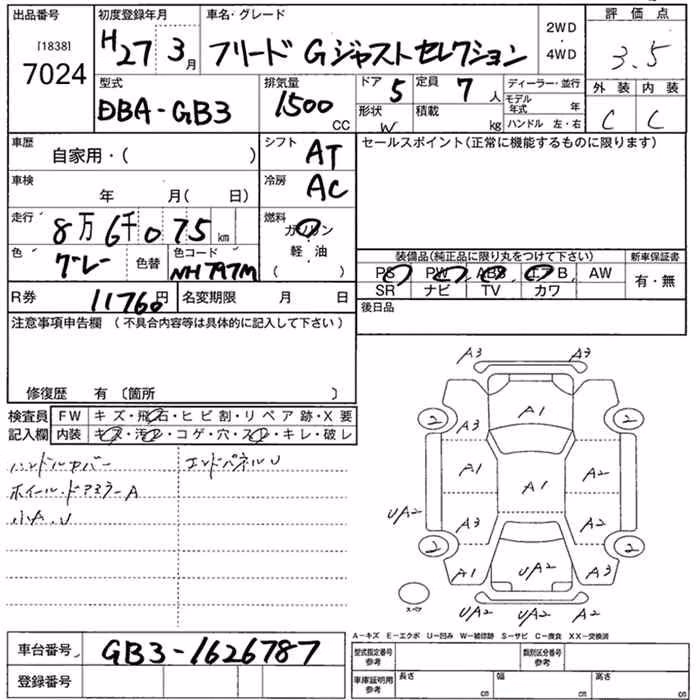 出品番号
[1838]
7024
初度登録年月
H27 3月
車名・グレード
フリード Gジャストセレクション
2WD
・
4WD
評価点
3.5
型式
DBA-GB3
排気量
1500
CC
ドア 5
定員 7 人
形状 W
積載 kg
ディーラー・並行
モデル年式 年
ハンドル 左・右
外装 内装
C C
車歴
自家用・( )
シフト AT
セールスポイント(正常に機能するものに限ります)
車検
年 月( 日)
冷房 AC
走行
8万6千075km
燃料
ガソリン
軽・油
( )
色
グレー
色替
色コード
NH797M
装備品(純正品に限り丸をつけて下さい)
新車保証書
PS PW ABS エアB AW
SR ナビ TV カワ
有・無
R券 11760円
名変期限 月 日
後日品
注意事項申告欄 (不具合内容等は具体的に記入して下さい)
修復歴 有 〔箇所 〕
検査員
記入欄
FW キズ・飛石・ヒビ割・リペア跡・X要
内装 キズ・汚レ・コゲ・穴・スレ・キレ・破レ
ハンドルカバー
エンドパネルU
ホイール・ドアミラーA
小A.U
A3 A3
2 A1 2
A3
A1 A1 A2
UA2 A3 A2
2 2
A1 UA2 A3
スペア
UA2 UA2 A2
A-キズ E-エクボ U-凹み W-補修跡 S-サビ C-腐食 XX-交換済
車台番号 GB3-1626787
登録番号
型式指定番号
参考
類別区分番号
参考
車庫証明用
参考
長さ cm
幅 cm
高さ cm